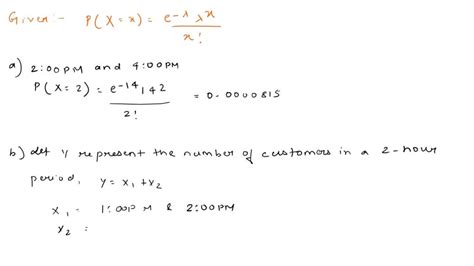 Given:- P(X=x) = e-λ λx
x!
a) 2:00PM and 4:00PM
P(X=2) = e-14 142 = 0.0000815
2!
b) let Y represent the number of customers in a 2-hour
period, Y = X1 + X2
X1 = 1:00PM & 2:00PM
X2 =